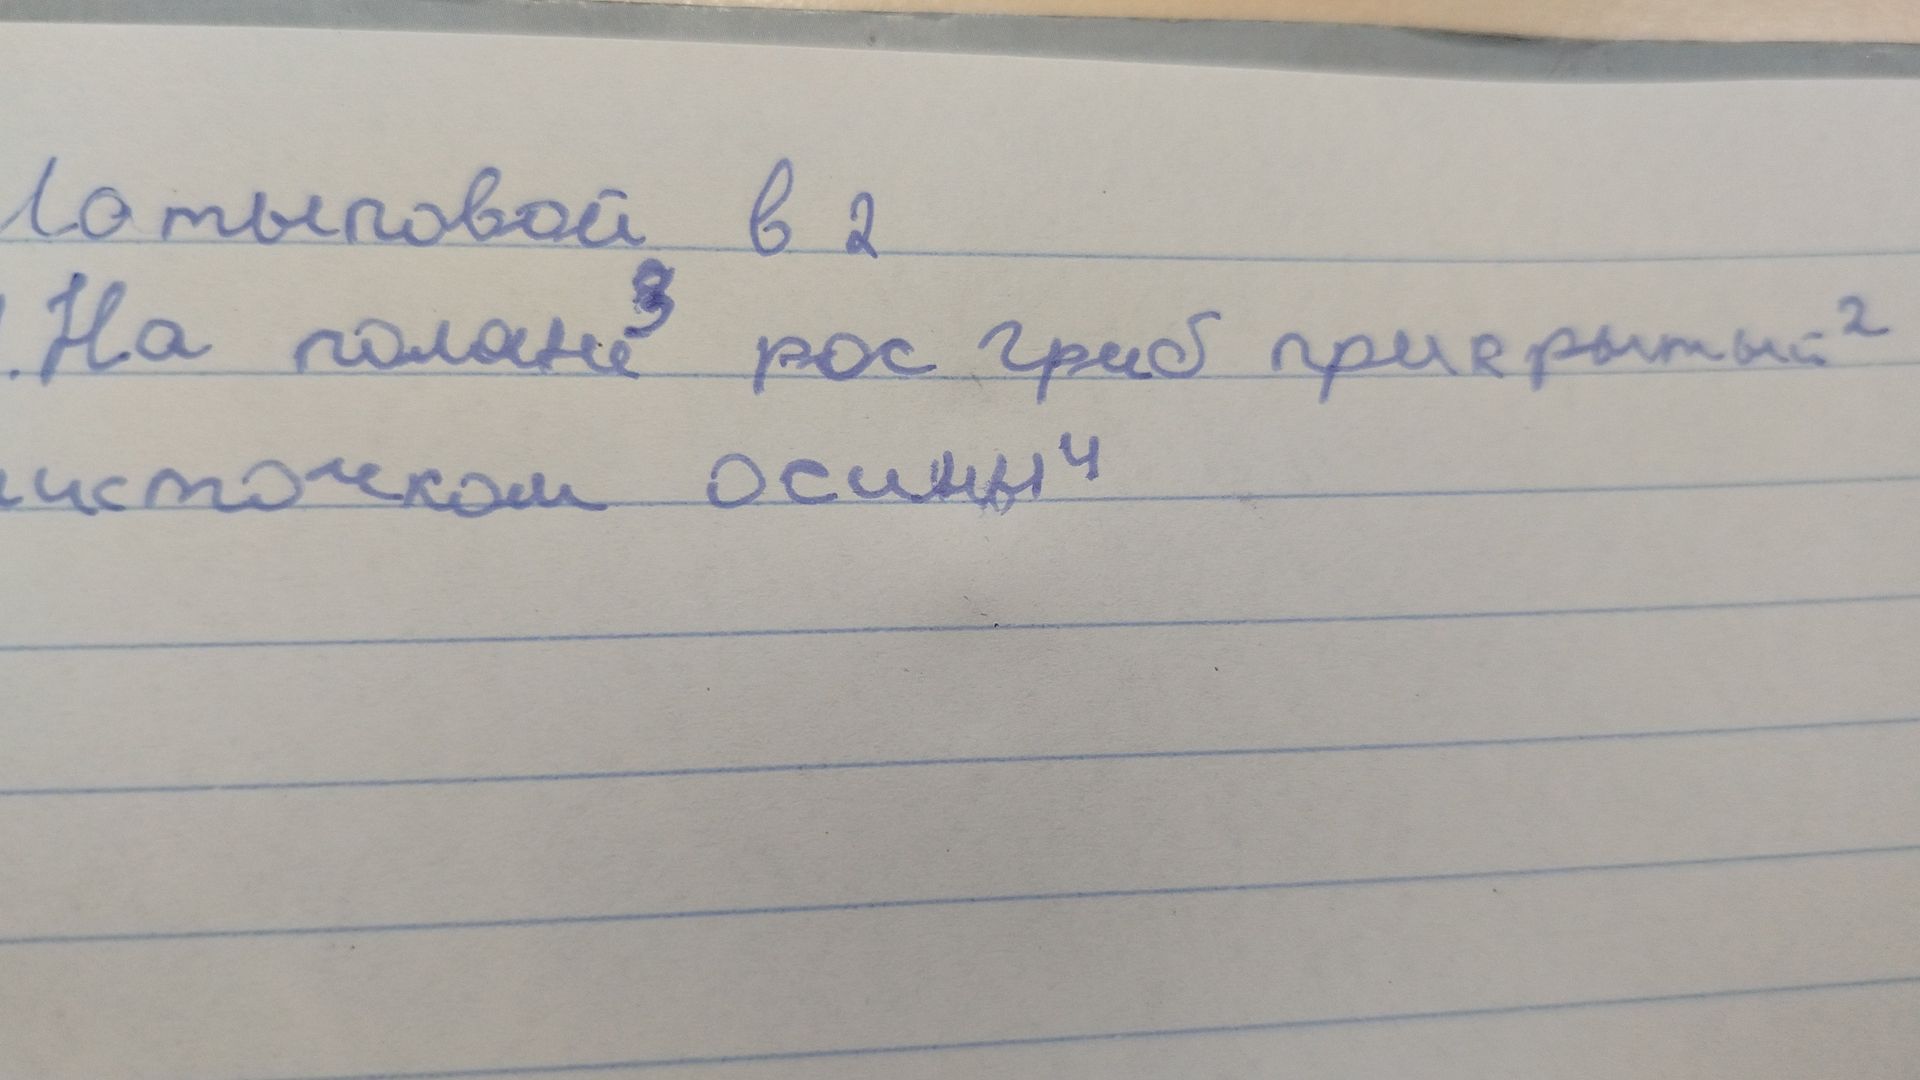 Потыповой в 2
1. На поляне³ рос гриб прикрытый²
листочком осины⁴